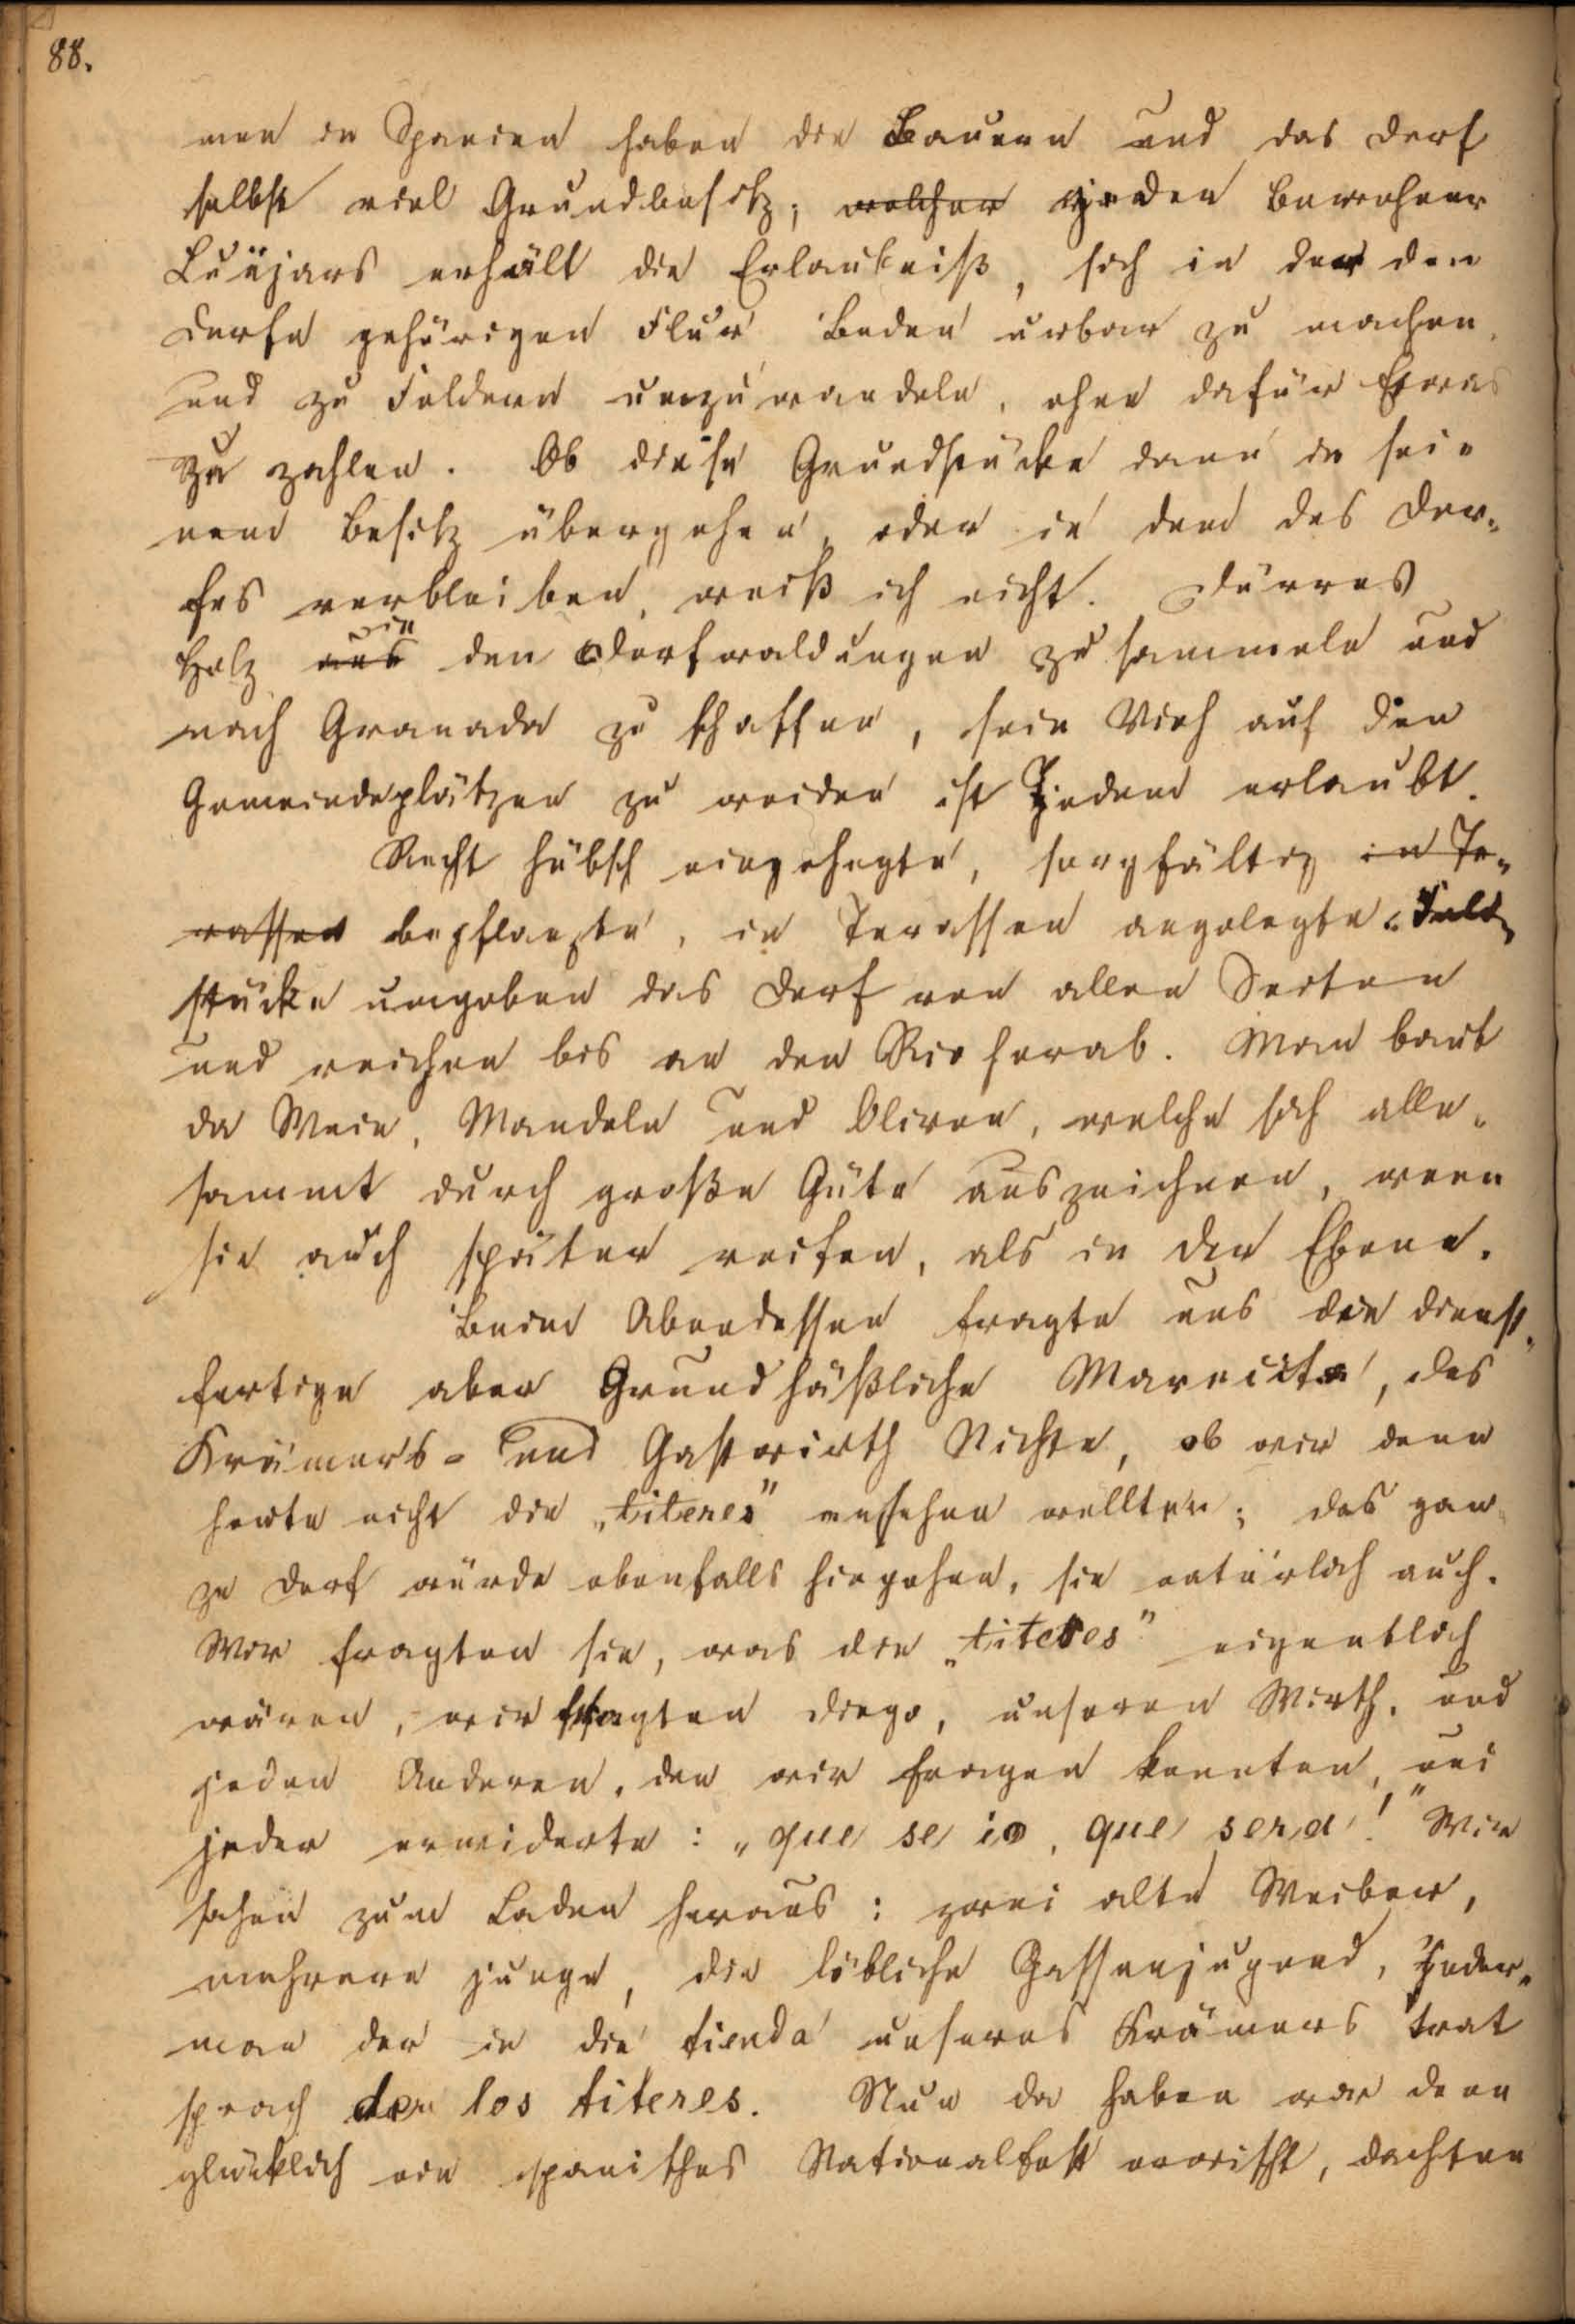 88.
men in Spanien haben die Bauern und das Dorf
selbst viel Grundbesitz; welcher jeder Bewohner
Luüjars erhält die Erlaubniß, sich in der dem
Dorfe gehörigen Flur Boden urbar zu machen
und zu Feldern umzuwandeln, ohne dafür Etwas
zu zahlen. Ob diese Grundstücke dann in sei-
nem Besitz übergehen, oder in dem des Dor-
fes verbleiben, weiß ich nicht. Dürres
Holz aus in den Dorfwaldungen zu sammeln und
nach Granada zu schaffen, sein Vieh auf den
Gemeindeplätzen zu weiden ist Jedem erlaubt.
Recht hübsch eingehegte, sorgfältig in Te-
rassen bepflanzte, in Terassen angelegte Feld-
stücke umgeben das Dorf von allen Seiten
und reichen bis an den Rio herab. Man baut
da Wein, Mandeln und Oliven, welche sich alle-
sammt durch große Güte auszeichnen, wenn
sie auch später reifen, als in der Ebene.
Beim Abendessen fragte uns die dienst-
fertige aber Grundhäßliche Mariita, des
Krämers- und Gastwirth Nichte, ob wir denn
heute nicht die „titeres" ansehen wollten; das gan-
ze Dorf würde ebenfalls hingehen, sie natürlich auch.
Wir fragten sie, was die „titeres" eigentlich
wären, wir fragten Diego, unseren Wirth, und
jeden Anderen, den wir fragen konnten, und
jeder erwiderte: „que se io, que sera!" Wir
sahen zum Laden heraus: zwei alte Weiber,
mehrere junge, die löbliche Gassenjugend, Jeder-
man der in die tienda unseres Krämers trat
sprach der los titeres. Nun da haben wir denn
glücklich ein spanisches Nationalfest erwischt, dachten